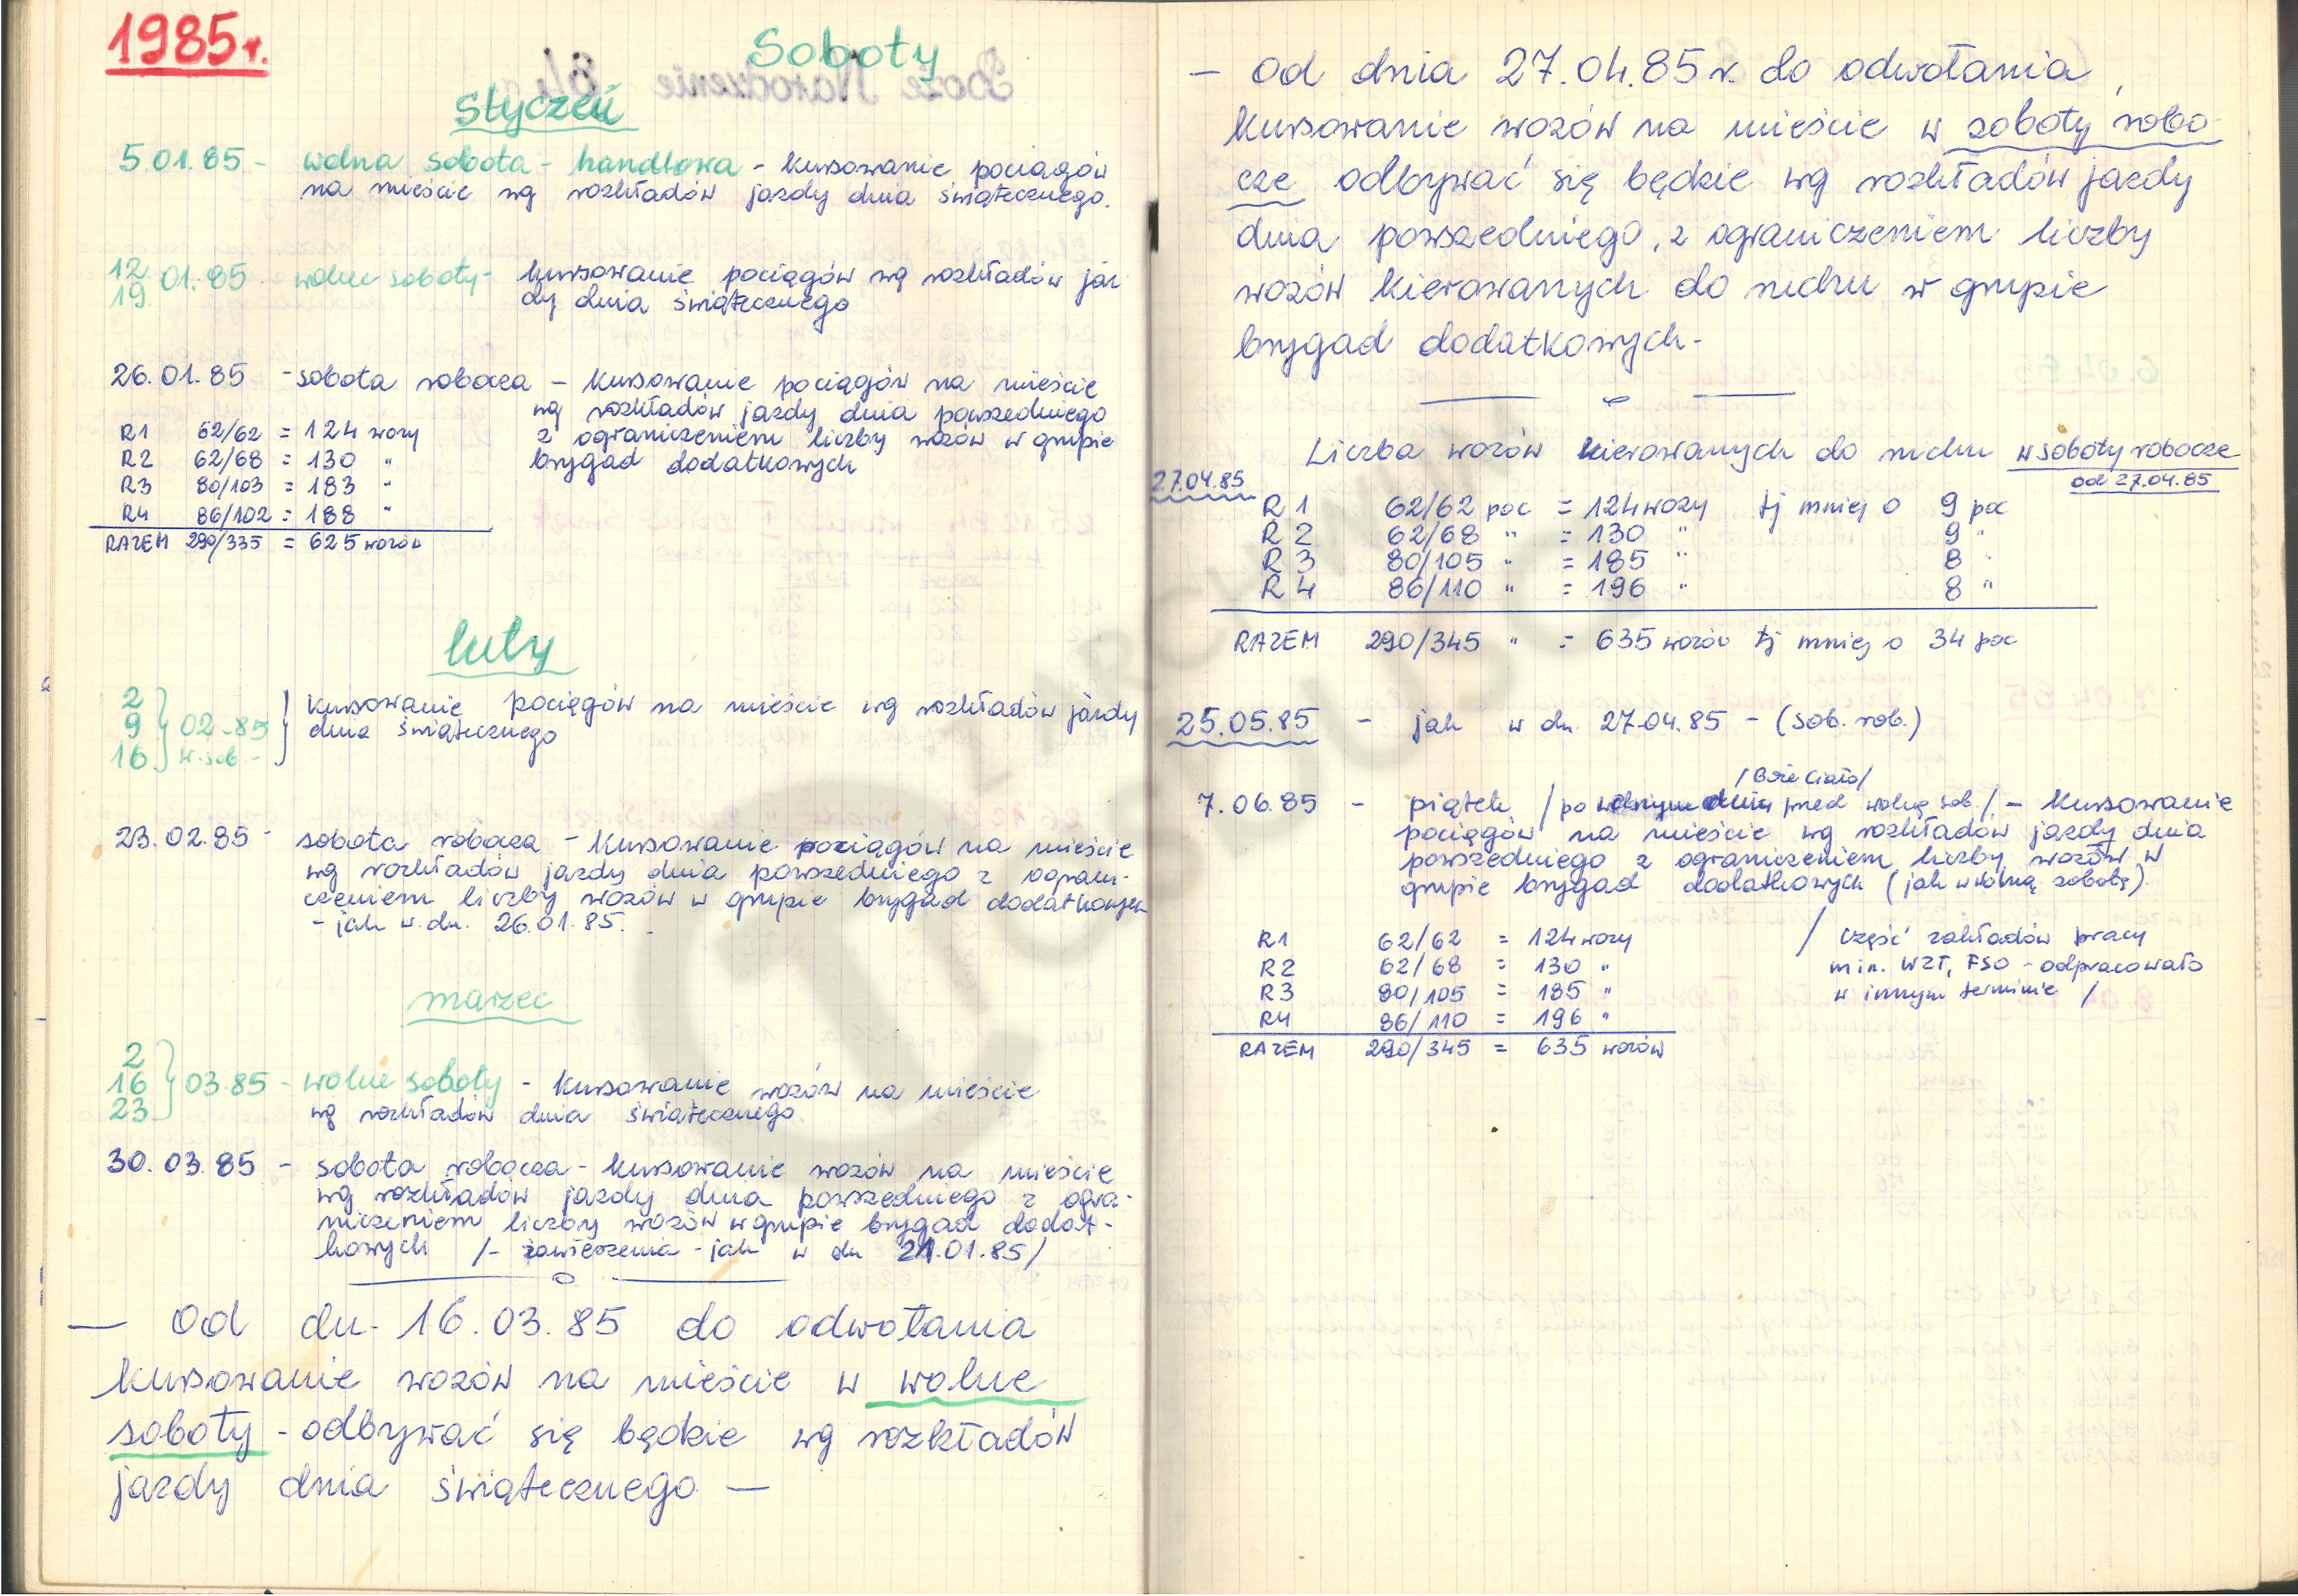 1985r.
Soboty
Styczeń
5.01.85 - wolna sobota - handlowa - kursowanie pociągów
na mieście wg rozkładów jazdy dnia świątecznego.
12
19. 01.85 - wolne soboty - kursowanie pociągów wg rozkładów jaz
dy dnia świątecznego
26.01.85 - sobota robocza - kursowanie pociągów na mieście
wg rozkładów jazdy dnia powszedniego
z ograniczeniem liczby wozów w grupie
brygad dodatkowych
R1 62/62 = 124 wozy
R2 62/68 = 130 "
R3 80/103 = 183 "
R4 86/102 = 188 "
RAZEM 290/335 = 625 wozów
luty
2
9
16 } 02.85 w.sob - } kursowanie pociągów na mieście wg rozkładów jazdy
dnia świątecznego
23.02.85 - sobota robocza - kursowanie pociągów na mieście
wg rozkładów jazdy dnia powszedniego z ograni-
czeniem liczby wozów w grupie brygad dodatkowych
- jak w dn. 26.01.85.
marzec
2
16
23 } 03.85 - wolne soboty - kursowanie wozów na mieście
wg rozkładów dnia świątecznego
30.03.85 - sobota robocza - kursowanie wozów na mieście
wg rozkładów jazdy dnia powszedniego z ogra-
niczeniem liczby wozów w grupie brygad dodat-
kowych /- zawieszenia - jak w dn 21.01.85/
- Od dn. 16.03.85 do odwołania
kursowanie wozów na mieście w wolne
soboty - odbywać się będzie wg rozkładów
jazdy dnia świątecznego -
- Od dnia 27.04.85r. do odwołania,
kursowanie wozów na mieście w soboty robo
cze odbywać się będzie wg rozkładów jazdy
dnia powszedniego, z ograniczeniem liczby
wozów kierowanych do ruchu w grupie
brygad dodatkowych -
Liczba wozów kierowanych do ruchu w soboty robocze
od 27.04.85
27.04.85
R1 62/62 poc = 124 wozy tj mniej o 9 poc
R2 62/68 " = 130 " 9 "
R3 80/105 " = 185 " 8 "
R4 86/110 " = 196 " 8 "
RAZEM 290/345 " = 635 wozów tj mniej o 34 poc
25.05.85 - jak w dn. 27.04.85 - (sob. rob.)
/Boże Ciało/
7.06.85 - piątek /po wolnym dniu przed wolną sob./ - kursowanie
pociągów na mieście wg rozkładów jazdy dnia
powszedniego z ograniczeniem liczby wozów w
grupie brygad dodatkowych (jak w wolną sobotę).
R1 62/62 = 124 wozy
R2 62/68 = 130 "
R3 80/105 = 185 "
R4 86/110 = 196 "
RAZEM 290/345 = 635 wozów
/ część zakładów pracy
min. WZT, FSO - odpracowało
w innym terminie /